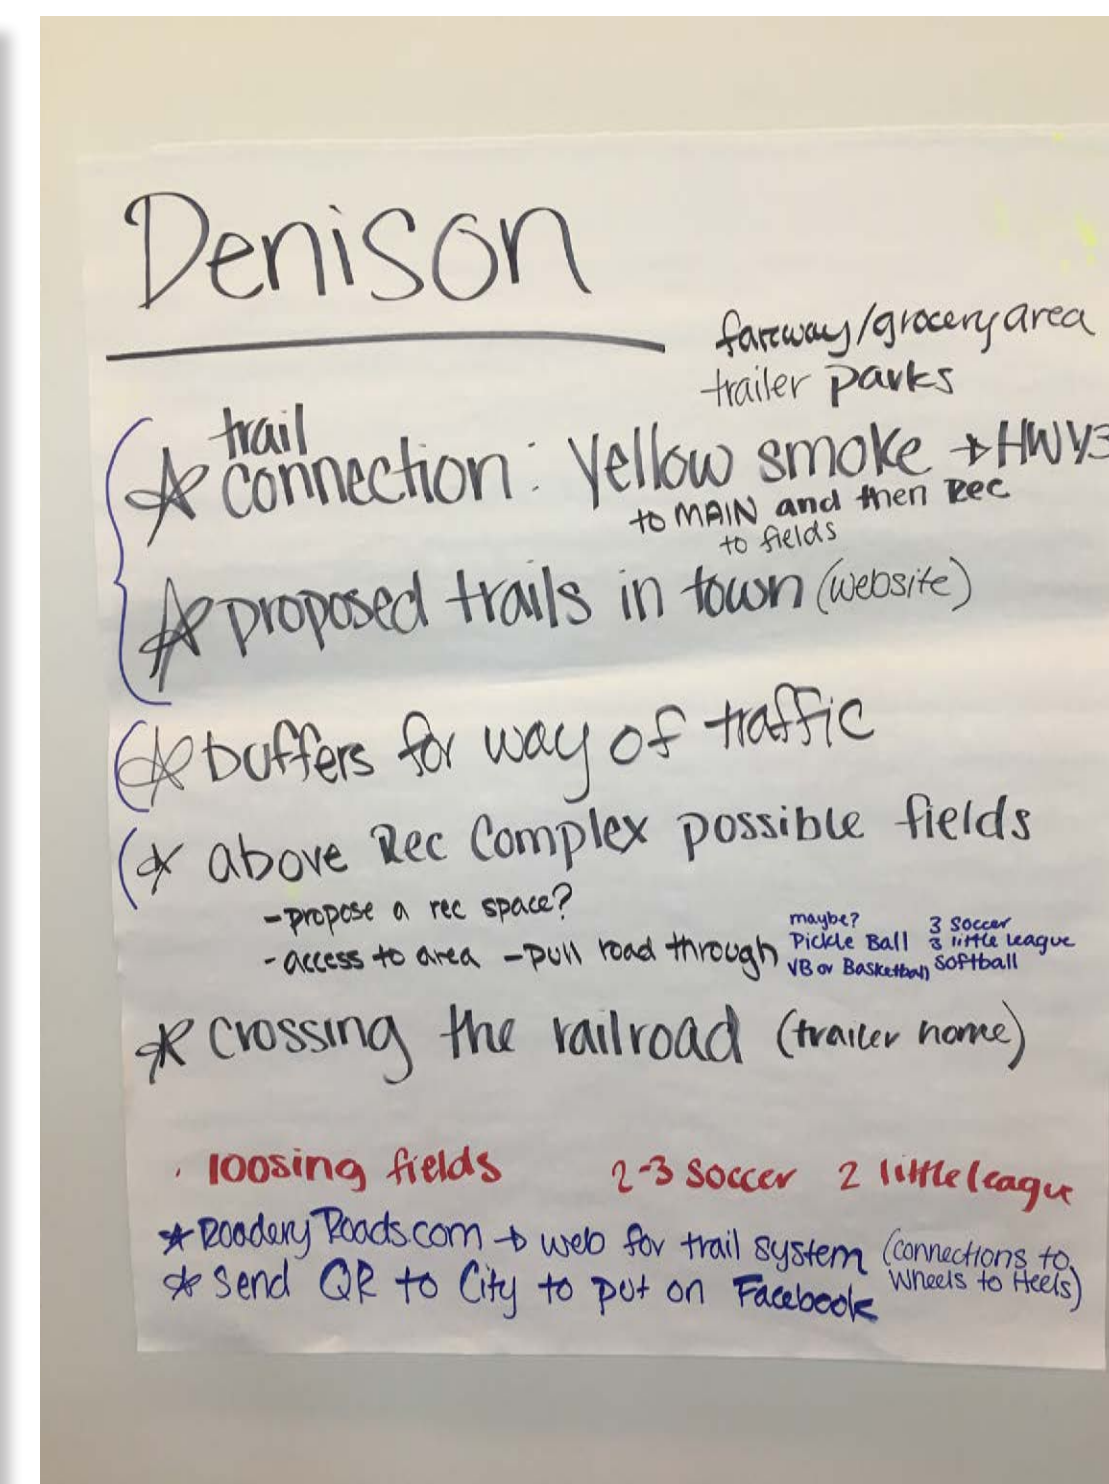 Denison
fareway/grocery area
trailer parks
trail
connection: Yellow smoke → HWY3
to MAIN and then Rec
to fields
proposed trails in town (website)
buffers for way of traffic
above Rec Complex possible fields
-propose a rec space?
-access to area -pull road through
maybe? 3 Soccer
Pickle Ball 3 little league
VB or Basketball Softball
crossing the railroad (trailer home)
loosing fields 2-3 soccer 2 little league
Roads.com → web for trail system (connections to
Wheels to Heels)
Send QR to City to put on Facebook